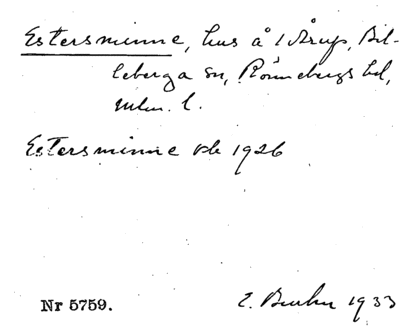 Estersminne, hus å 1 Årup, Bil-
leberga sn, Rönnebergs hd,
Mlm. l.
Estersminne 1926
Nr 5759. 1933